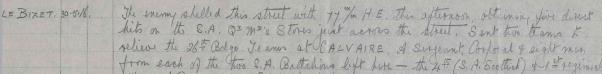 LE BIZET. 30-5-16. The enemy shelled this street with 77 m/m H.E. this afternoon, obtaining five direct
hits on the S.A. Qr Mr's Stores just across the street. Sent two teams to
relieve the 26th Bdge. Teams at CALVAIRE. A Sergeant Corporal & eight men
from each of the two S.A. Battalions left here — the 4th (S.A. Scottish) & 1st regiment